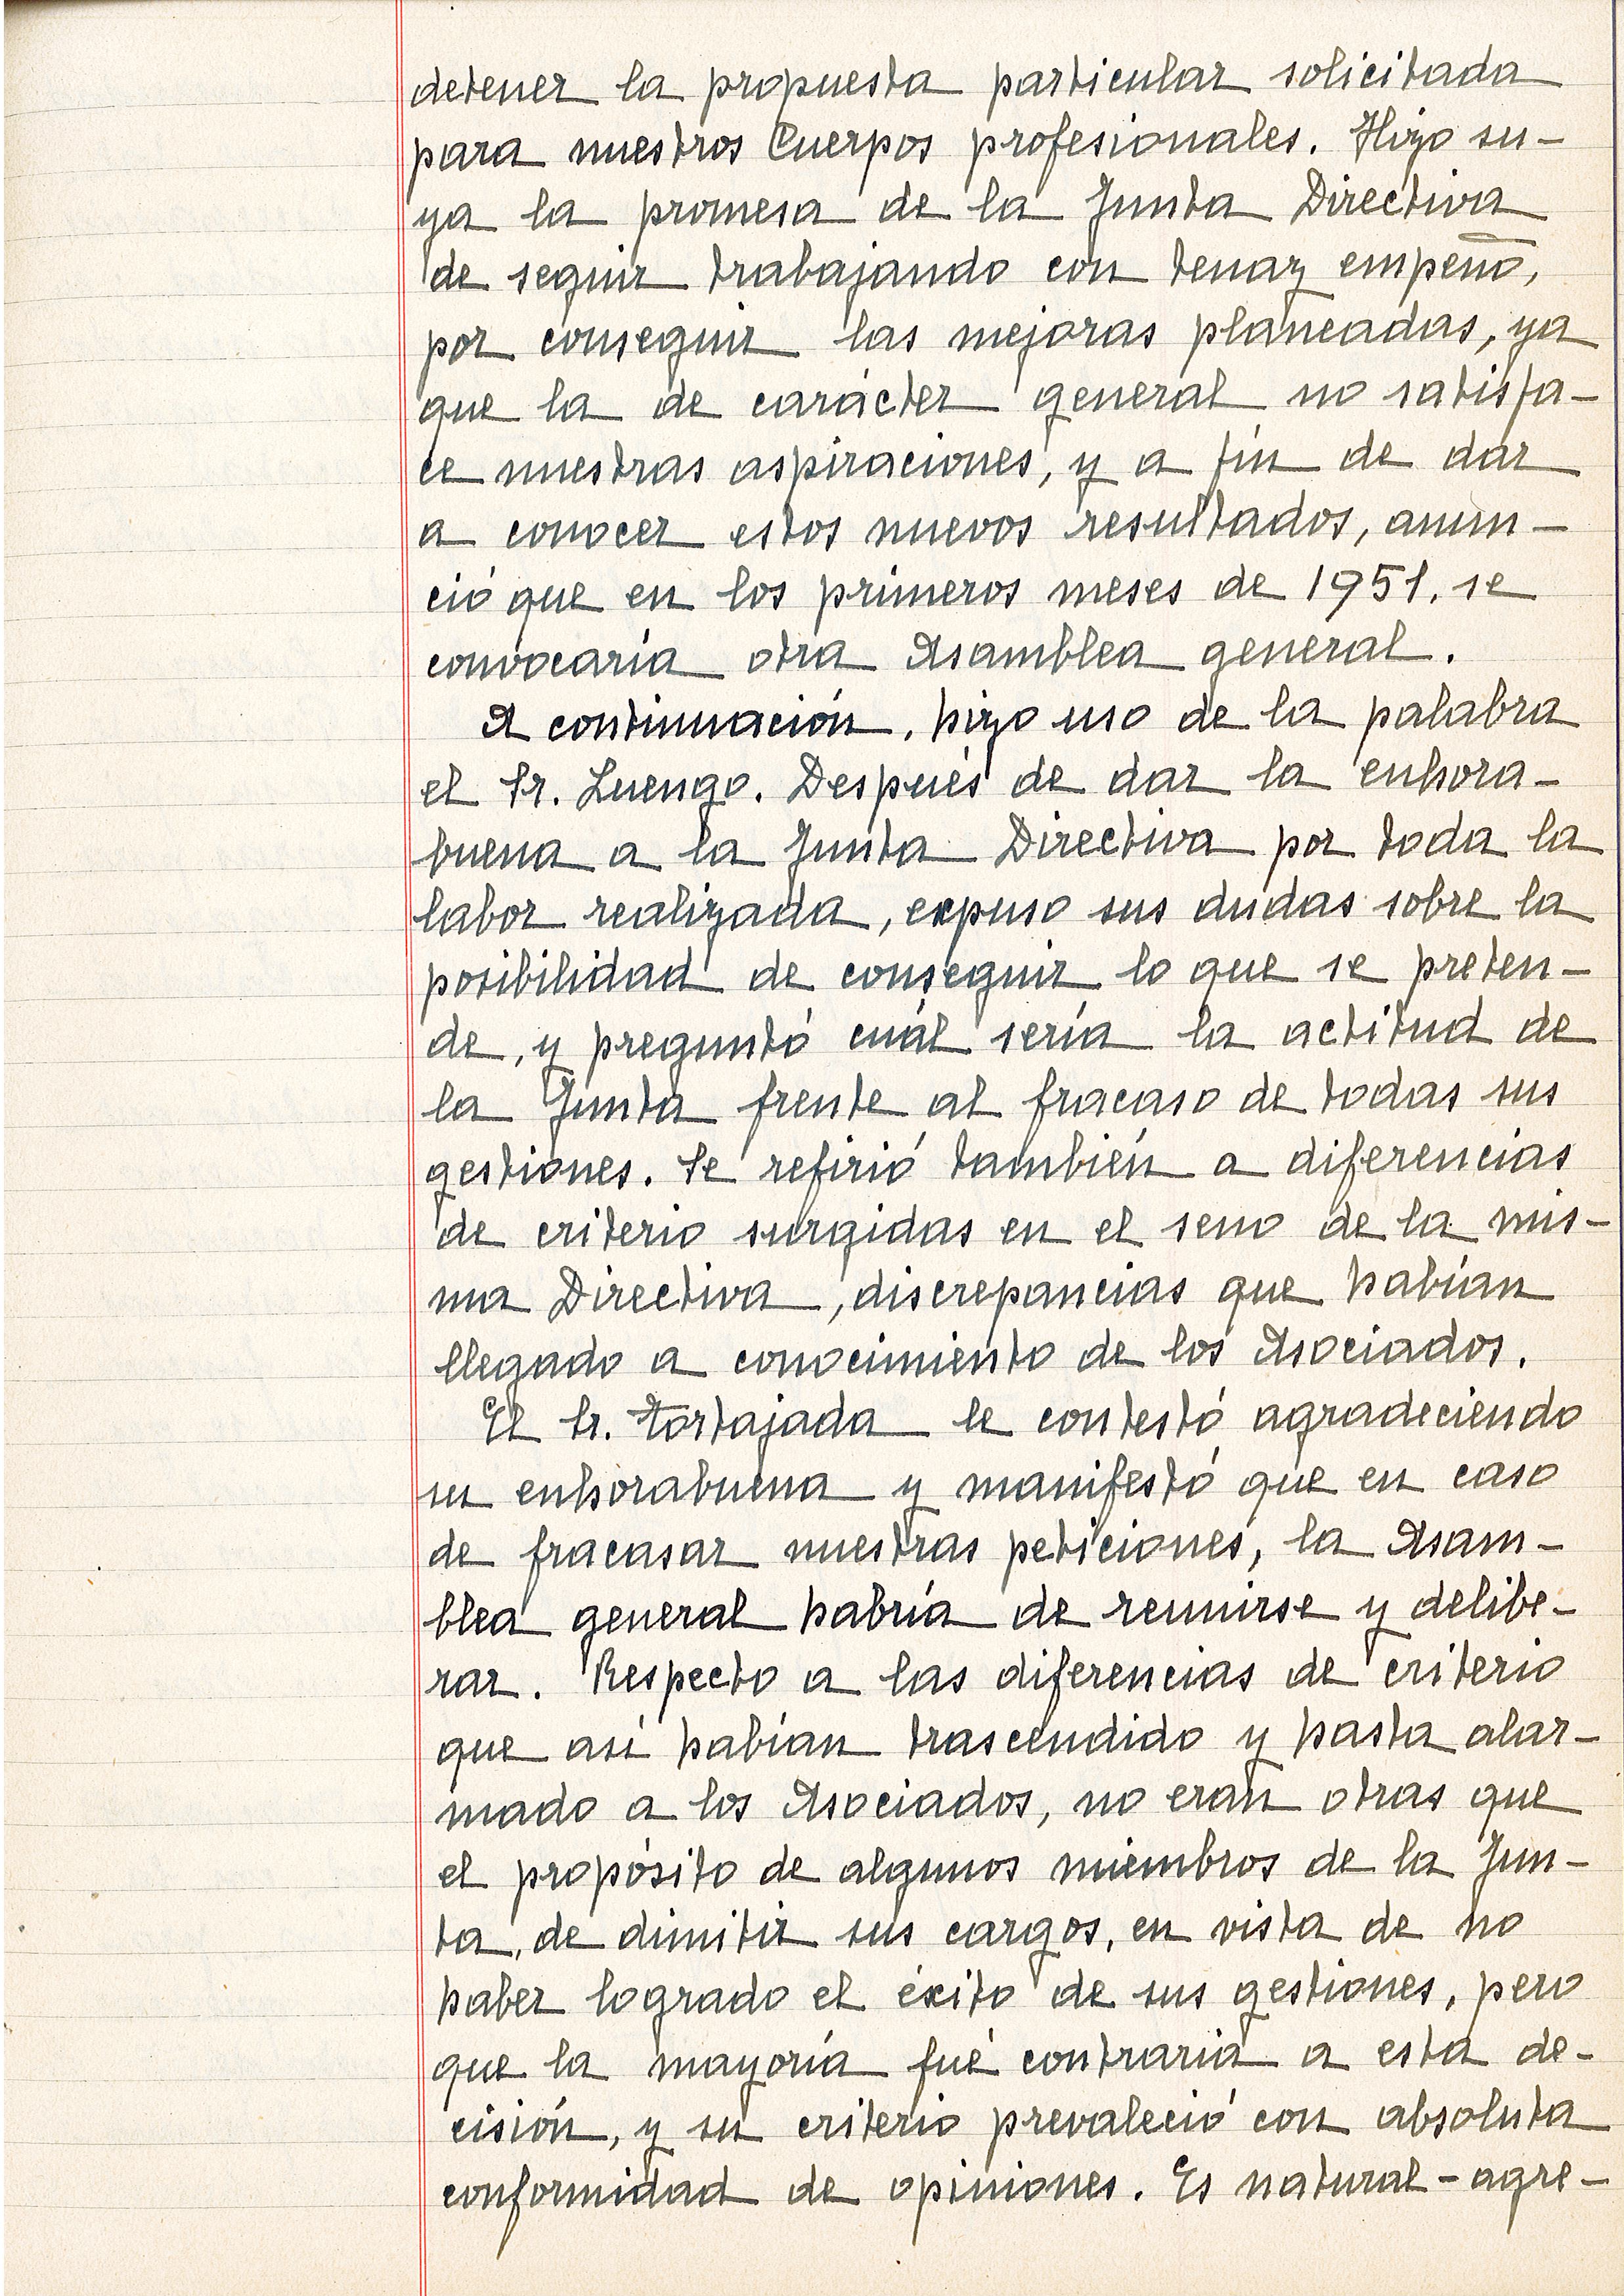 detener la propuesta particular solicitada
para nuestros Cuerpos profesionales. Hizo su-
ya la promesa de la Junta Directiva
de seguir trabajando con tenaz empeño,
por conseguir las mejoras planeadas, ya
que la de carácter general no satisfa-
ce nuestras aspiraciones, y a fin de dar
a conocer estos nuevos resultados, anun-
ció que en los primeros meses de 1951, se
convocaría otra Asamblea general.
A continuación, hizo uso de la palabra
el Sr. Luengo. Después de dar la enhora-
buena a la Junta Directiva por toda la
labor realizada, expuso sus dudas sobre la
posibilidad de conseguir lo que se preten-
de, y preguntó cuál sería la actitud de
la Junta frente al fracaso de todas sus
gestiones. Se refirió también a diferencias
de criterio surgidas en el seno de la mis-
ma Directiva, discrepancias que habían
llegado a conocimiento de los Asociados.
El Sr. Tortajada le contestó agradeciendo
su enhorabuena y manifestó que en caso
de fracasar nuestras peticiones, la Asam-
blea general habría de reunirse y delibe-
rar. Respecto a las diferencias de criterio
que así habían trascendido y hasta alar-
mado a los Asociados, no eran otras que
el propósito de algunos miembros de la Jun-
ta, de dimitir sus cargos, en vista de no
haber logrado el éxito de sus gestiones, pero
que la mayoría fué contraria a esta de-
cisión, y su criterio prevaleció con absoluta
conformidad de opiniones. Es natural - agre-